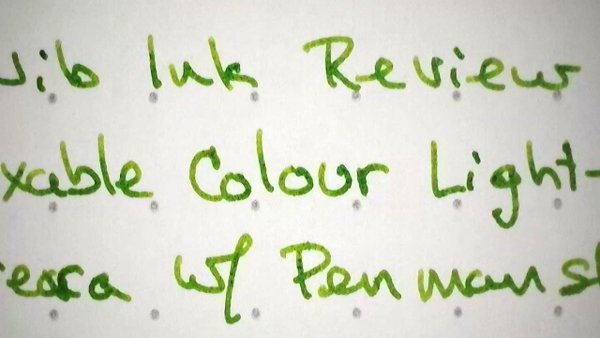 Ink Review
xable Colour Light-
w/ Penmansh